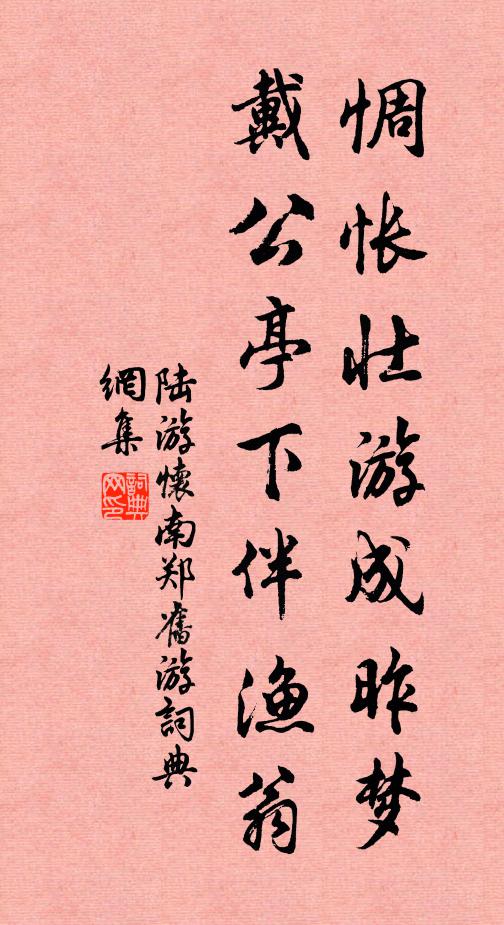 惆怅壮游成昨梦
戴公亭下伴渔翁
陆游懷南郑舊游詞典
網集
詞典
网印